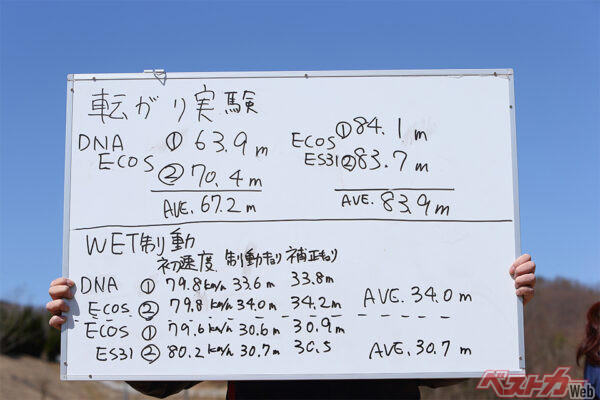 転がり実験
DNA ① 63.9m
ECOS ② 70.4m
AVE. 67.2m
ECOS ① 84.1m
ES31 ② 83.7m
AVE. 83.9m
WET制動
初速度 制動キョリ 補正キョリ
DNA ① 79.8km/h 33.6m 33.8m
ECOS ② 79.8km/h 34.0m 34.2m AVE. 34.0m
ECOS ① 79.6km/h 30.6m 30.9m
ES31 ② 80.2km/h 30.7m 30.5 AVE. 30.7m
ベストカーWeb